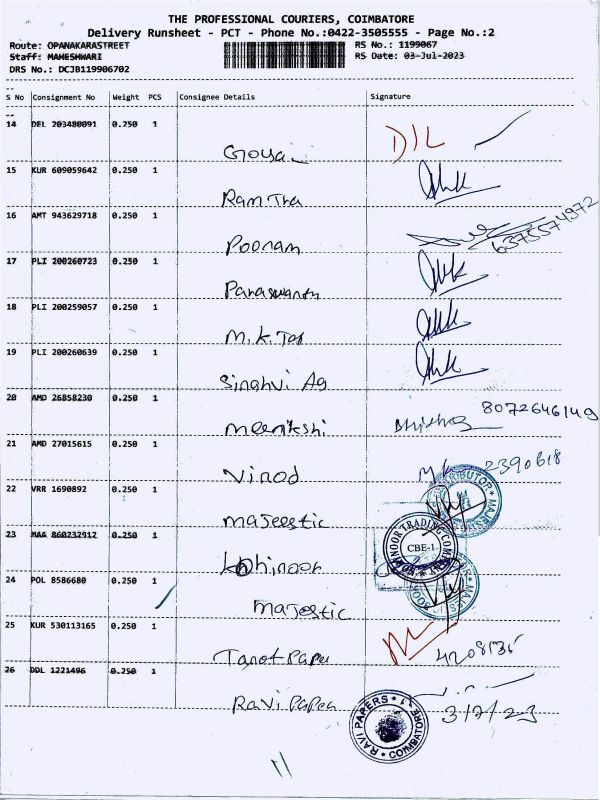 THE PROFESSIONAL COURIERS, COIMBATORE
Delivery Runsheet - PCT - Phone No.:0422-3505555 - Page No.:2
Route: OPANAKARASTREET RS No.: 1199067
Staff: MAHESHWARI RS Date: 03-Jul-2023
DRS No.: DCJB119906702
S No Consignment No Weight PCS Consignee Details Signature
14 DEL 203480091 0.250 1
D/L
15 KUR 609059642 0.250 1
16 AMT 943629718 0.250 1
Poonam 6375574972
17 PLI 200260723 0.250 1
18 PLI 200259057 0.250 1
M.K.
19 PLI 200260639 0.250 1
Singhvi Ag
20 AMD 26858230 0.250 1
meenikshi 8072646149
21 AMD 27015615 0.250 1
Vinod 2390618
22 VRR 1690892 0.250 1
majeestic
23 MAA 860232912 0.250 1
kohinoor
CBE-1
24 POL 8586680 0.250 1
majestic
25 KUR 530113165 0.250 1
26 DDL 1221496 0.250 1
Ravi Paper
RAVI PAPERS COIMBATORE-1
3/7/23